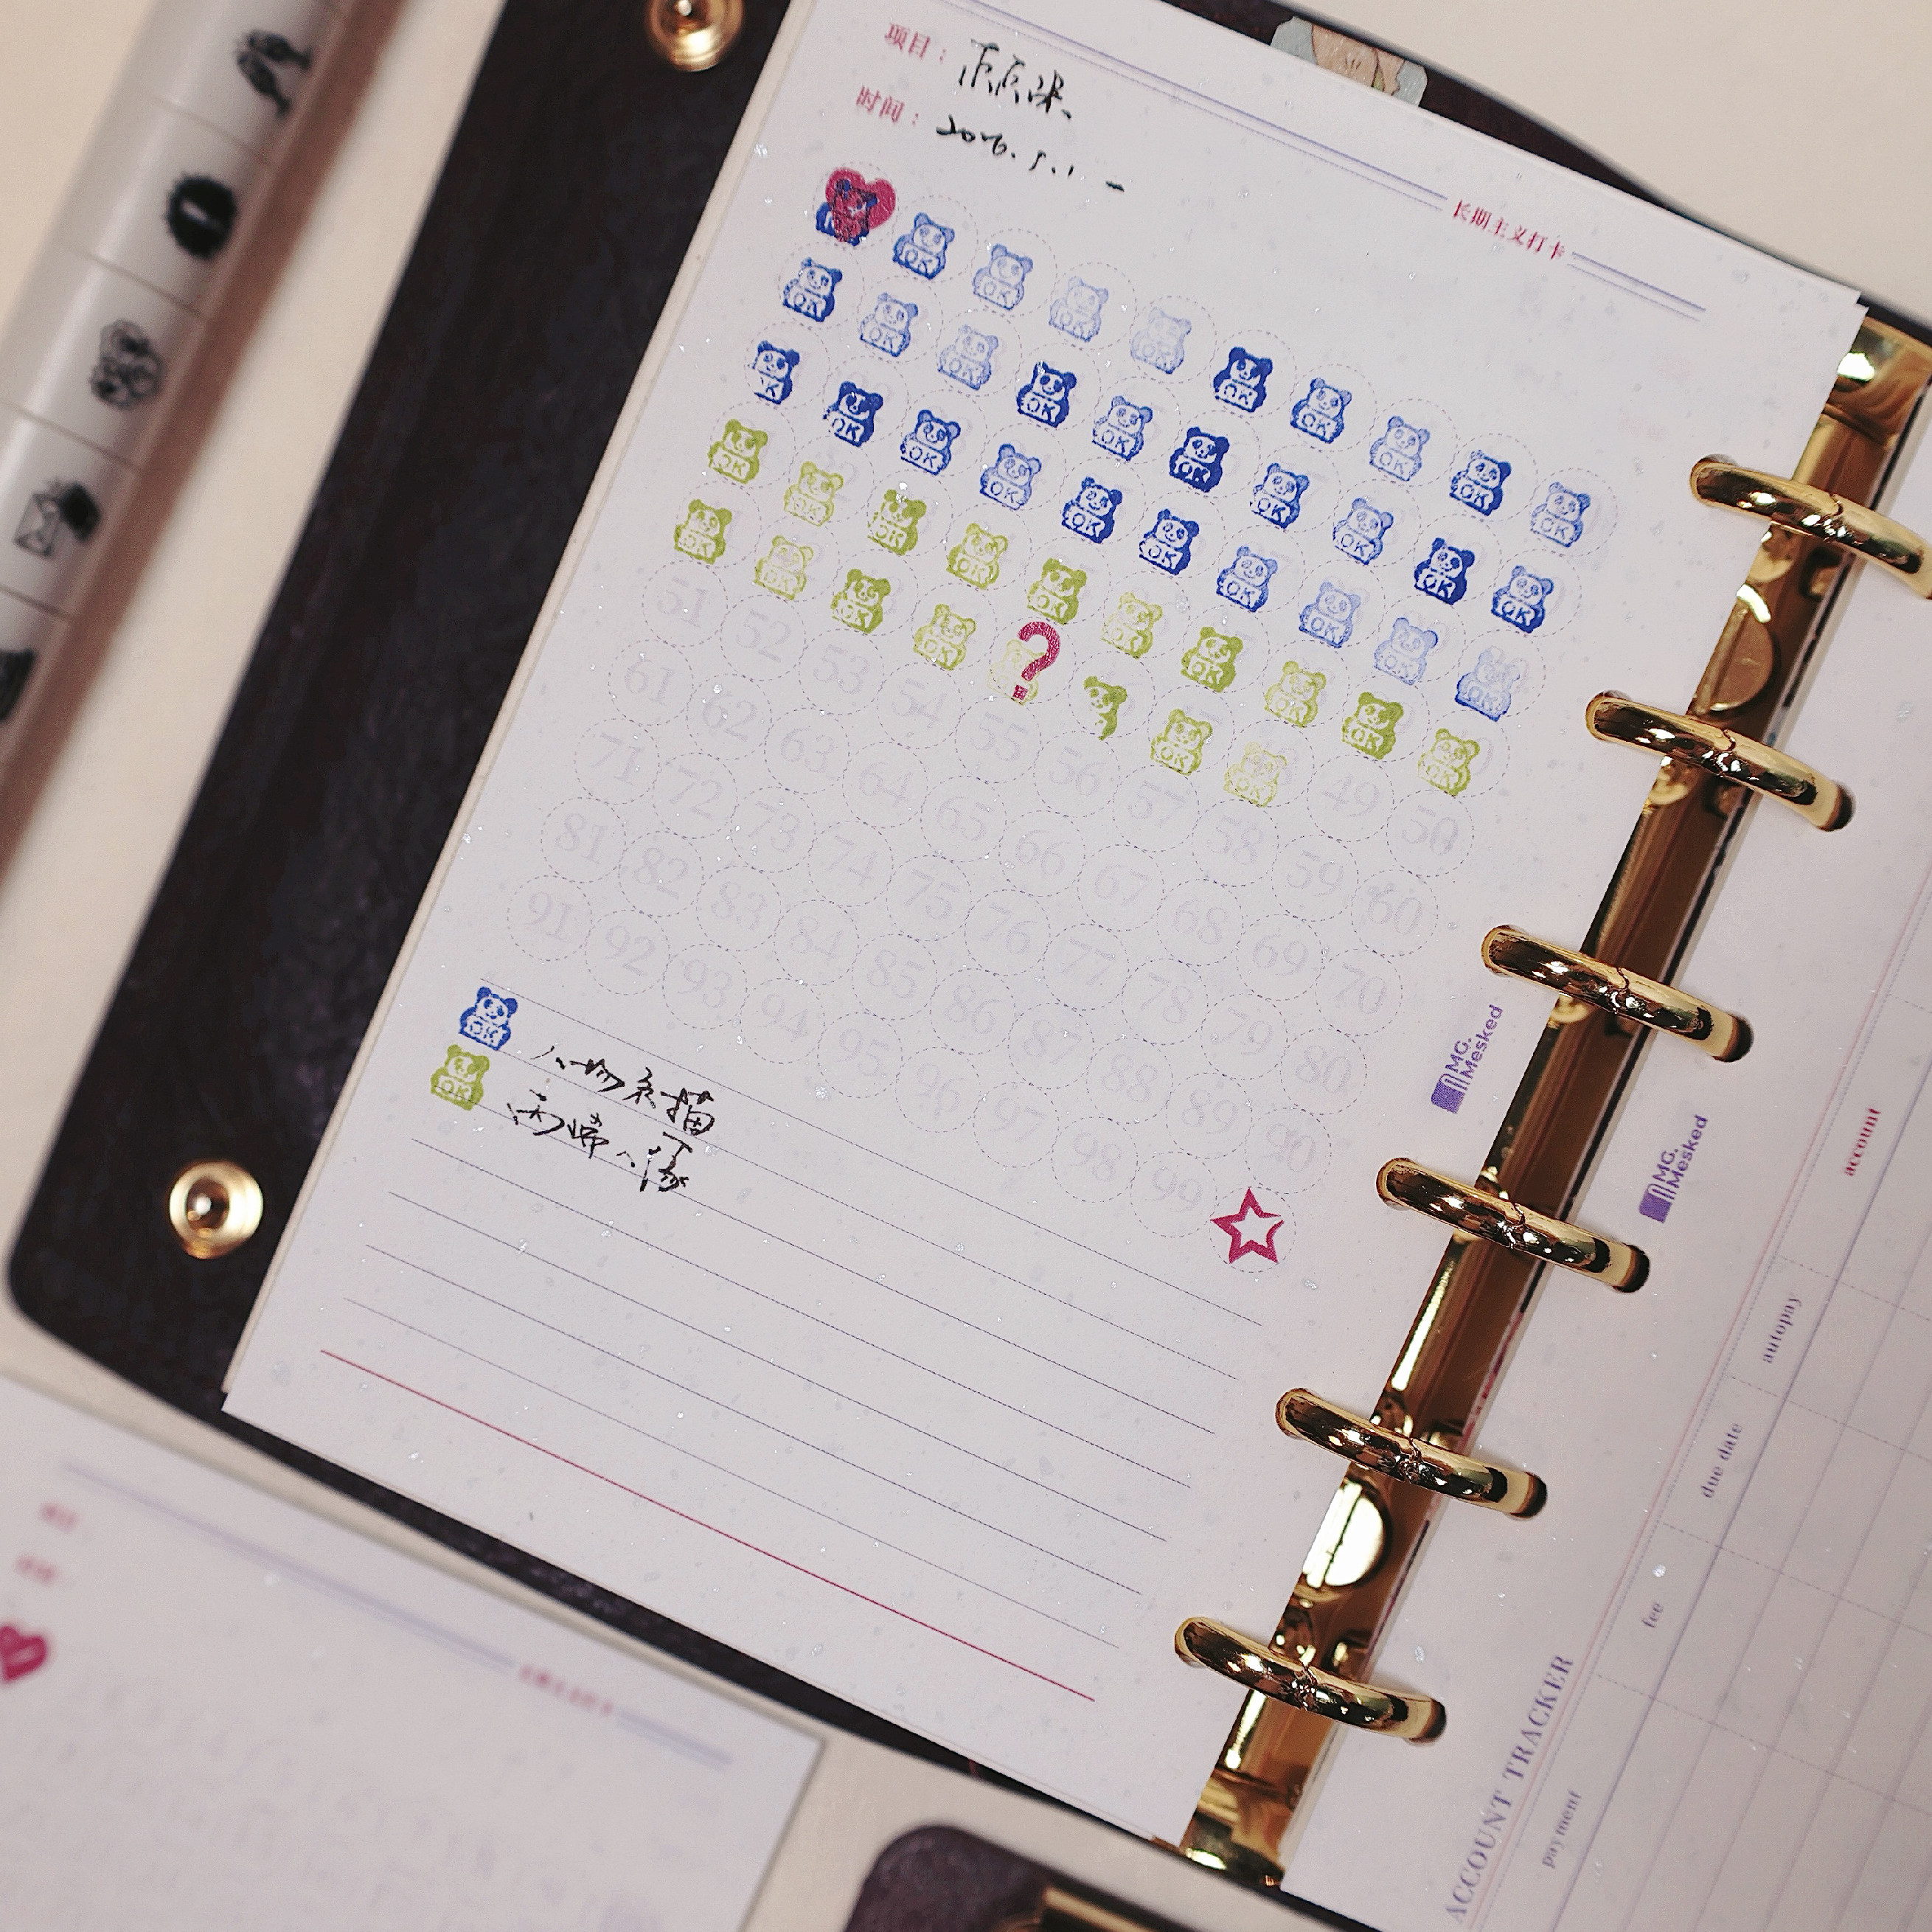 项目：
时间：2026.5.1 -
长期主义打卡
OK
51 52 53 54 55 56 57 58 49 50
61 62 63 64 65 66 67 68 59 60
71 72 73 74 75 76 77 78 69 70
81 82 83 84 85 86 87 88 79 80
91 92 93 94 95 96 97 98 89 90
99
?
OK 人物素描
OK
MG.
Mesked
MG.
Mesked
account
autopay
due date
fee
payment
ACCOUNT TRACKER